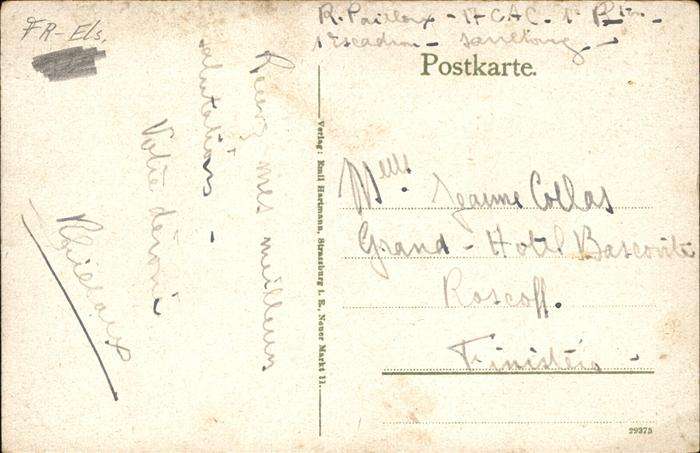 FR-Els.
R. Pailloux - 17 C.A.C. - 1er
1 Escadron - Sarrebourg -
Postkarte.
Recevez mes meilleurs
salutations -
Votre dévoué
RPailloux
Verlag: Emil Hartmann, Strassburg i. E., Neuer Markt 11.
Melle Jeanne Collas
Grand - Hotel Bascovite
Roscoff.
Finistère -
29375